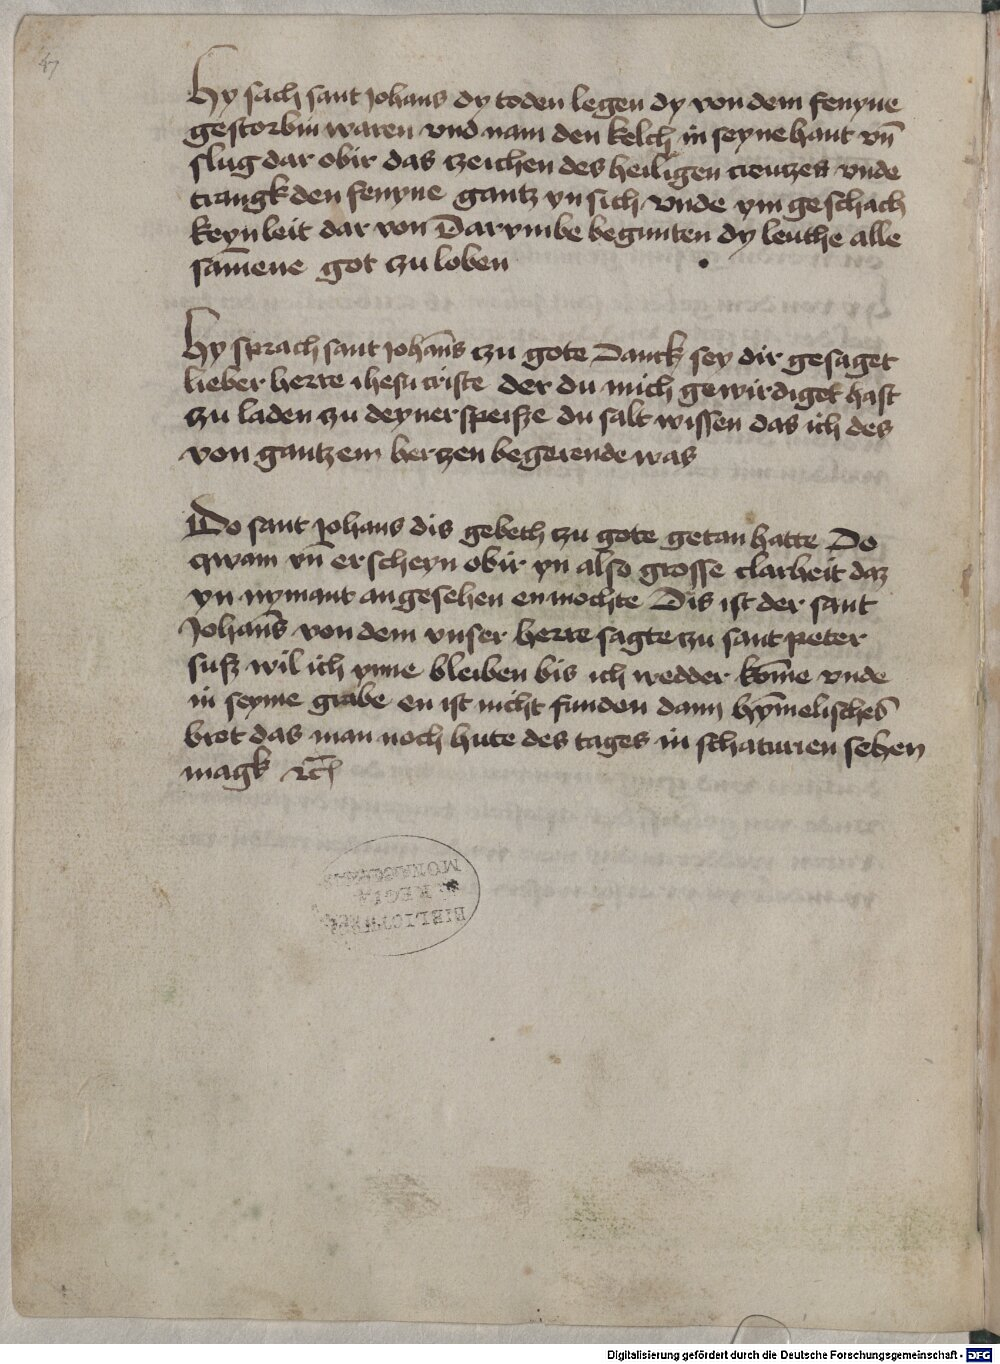 47
Hy sach sant Johans dy toden legen dy von dem fenyne
gestorbin waren vnd nam den kelch in seyne hant vn̄
slug dar obir das zceichen des heiligen creutzes vnde
trangk den fenyne gantz yn sich vnde ym geschach
keyn leit dar von Darvmbe begunten dy leuthe alle
sam̄ene got zcu loben
Hy sprach sant Johan̄s zcu gote Danck sey dir gesaget
lieber herre ihesu criste der du mich gewirdiget hast
zcu laden zcu deyner speisze du salt wissen das ich des
von gantzem hertzen begerende was
Do sant Johans dis gebeth zcu gote getan hatte Do
qwam vn̄ erscheyn obir yn also grosse clarheit daz
yn nymant angesehen en mochte Dis ist der sant
Johan̄s von dem vnser herre sagte zcu sant peter
susz wil ich ynne bleiben bis ich wedder kom̄e vnde
in seyme grabe en ist nicht funden dann hym̄elisches
brot das man noch hute des tages in schaturien sehen
magk ꝛc̄
BIBLIOTHECA
REGIA
MONACENSIS
Digitalisierung gefördert durch die Deutsche Forschungsgemeinschaft - DFG